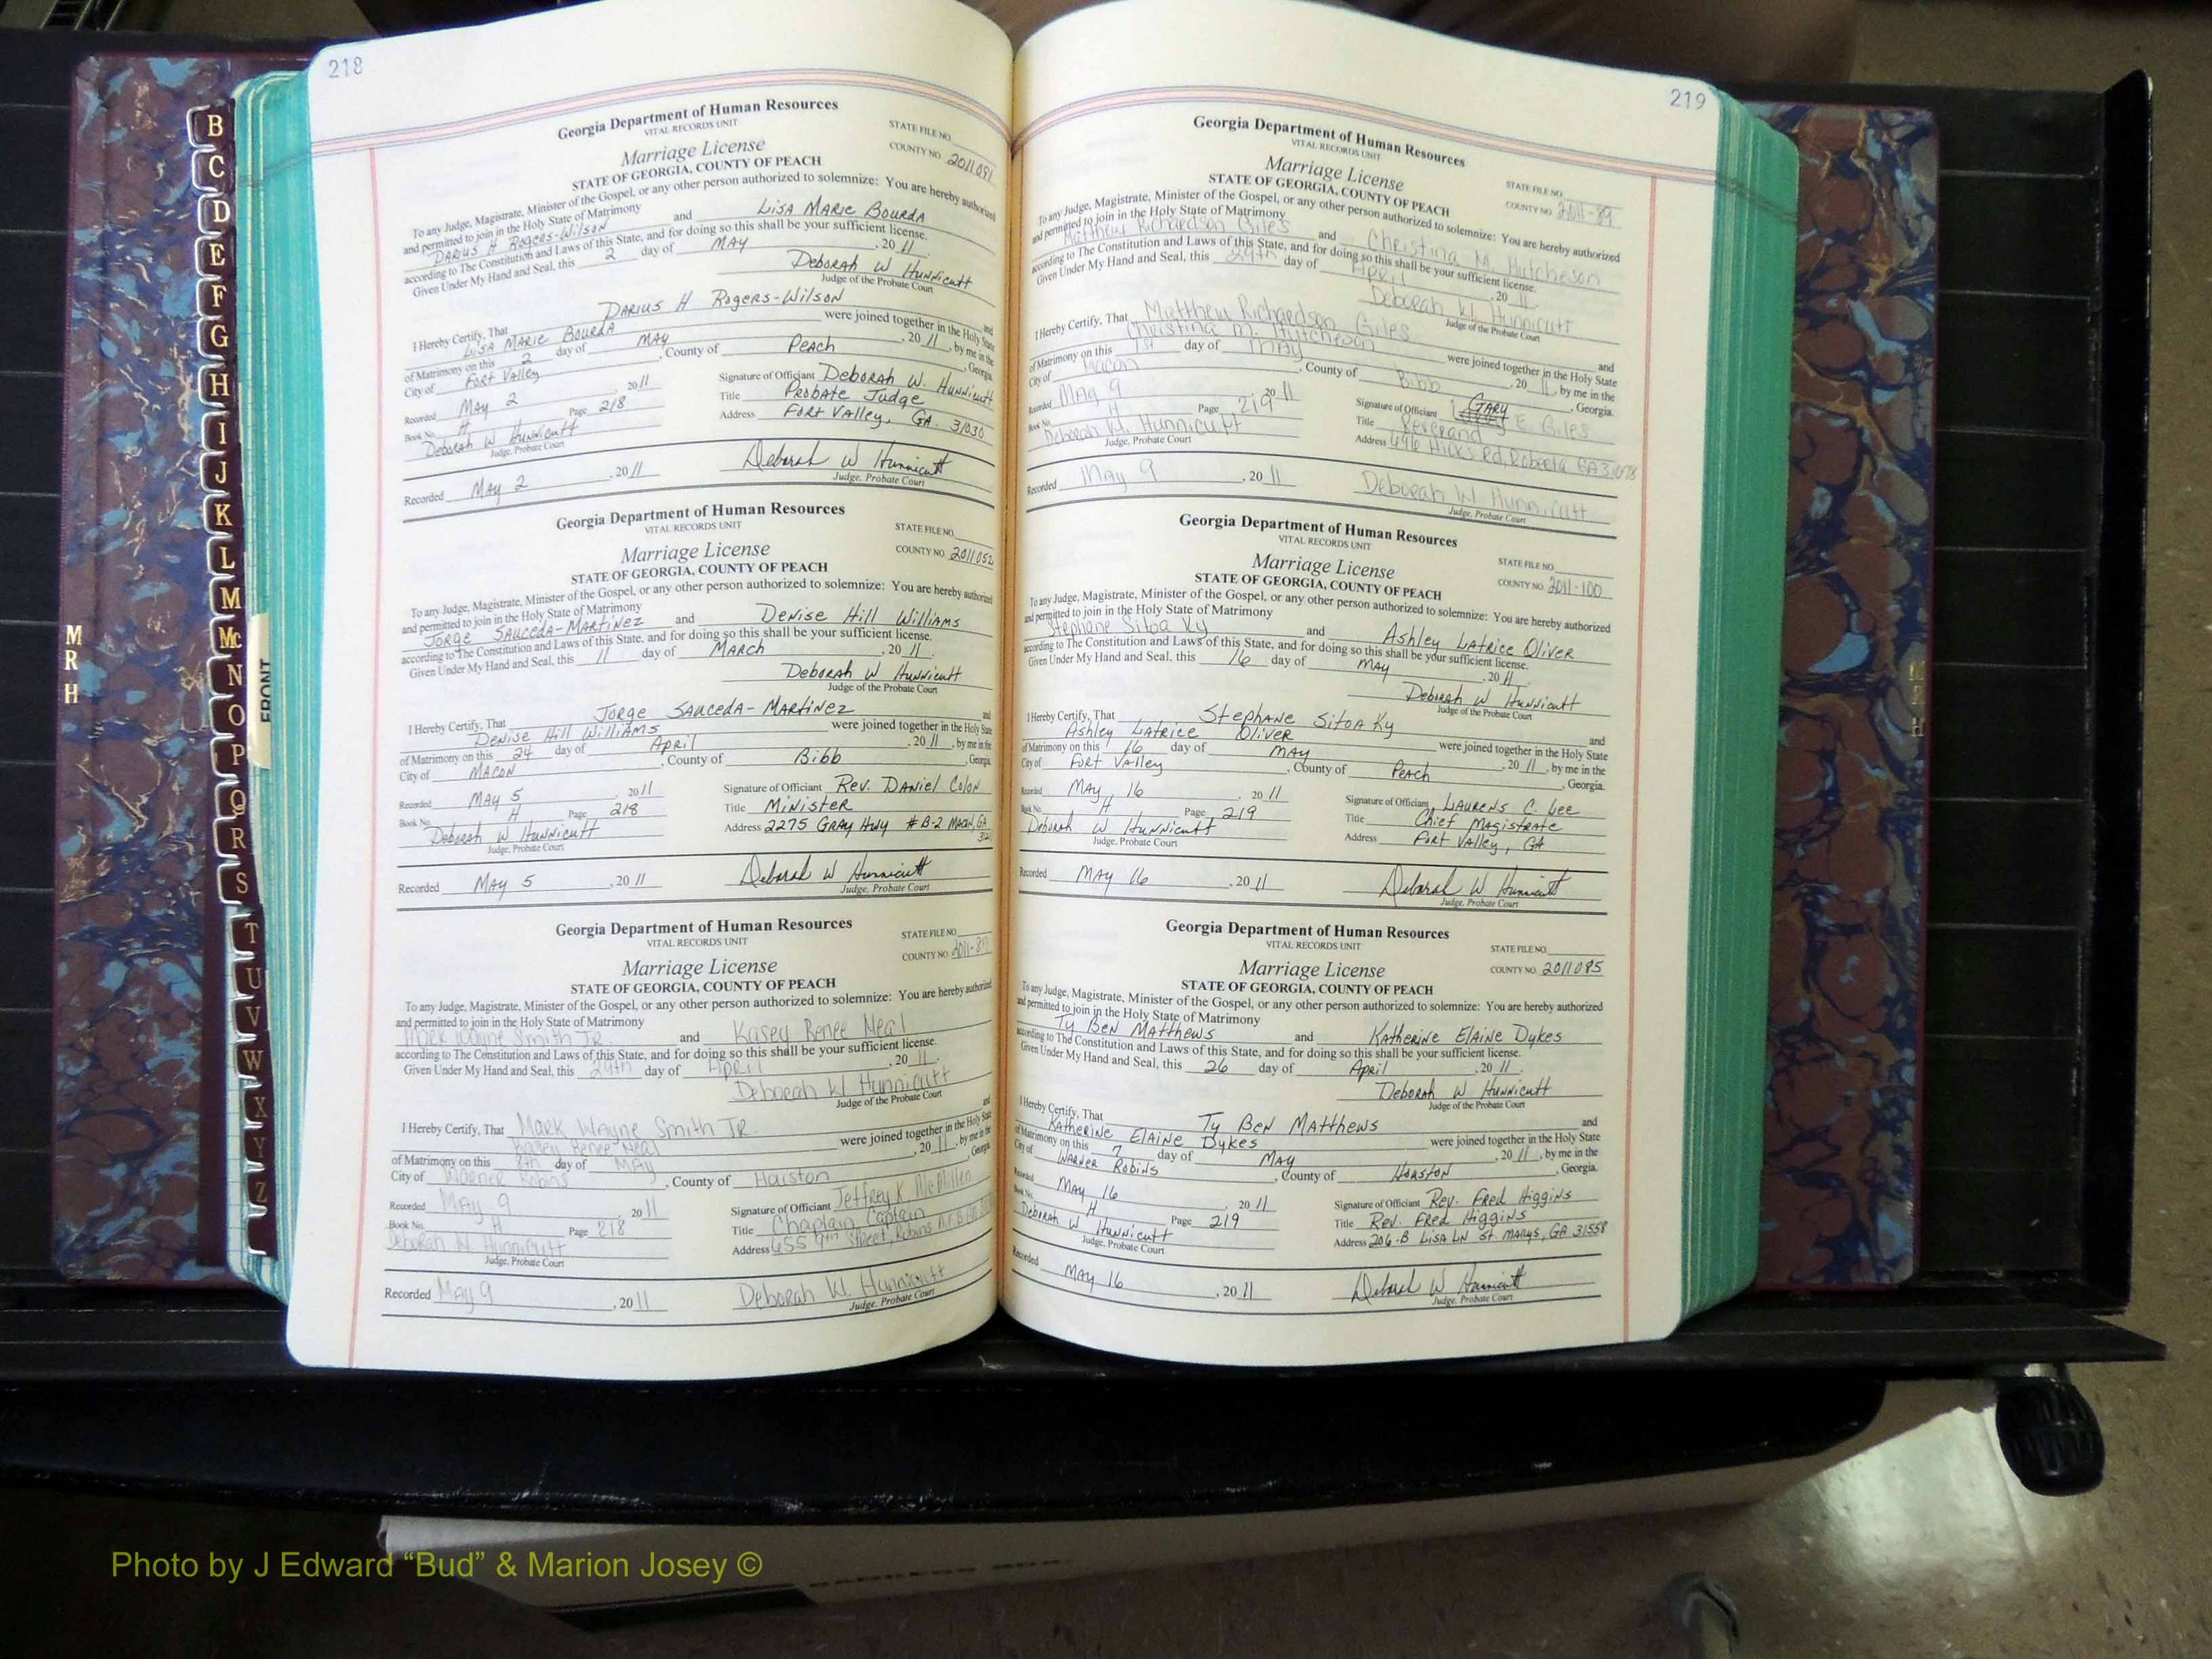 218
Georgia Department of Human Resources
VITAL RECORDS UNIT
STATE FILE NO.
Marriage License
COUNTY NO. 2011091
STATE OF GEORGIA, COUNTY OF PEACH
To any Judge, Magistrate, Minister of the Gospel, or any other person authorized to solemnize: You are hereby authorized
and permitted to join in the Holy State of Matrimony
Darius H Rogers-Wilson and Lisa Marie Bourda
according to The Constitution and Laws of this State, and for doing so this shall be your sufficient license.
Given Under My Hand and Seal, this 2 day of May, 20 11.
Deborah W Hunnicutt
Judge of the Probate Court
I Hereby Certify, That Darius H Rogers-Wilson and
Lisa Marie Bourda were joined together in the Holy State
of Matrimony on this 2 day of May, 20 11, by me in the
City of Fort Valley, County of Peach, Georgia.
Recorded May 2, 20 11 Signature of Officiant Deborah W. Hunnicutt
Book No. H Page 218 Title Probate Judge
Deborah W Hunnicutt Address Fort Valley, GA. 31030
Judge, Probate Court
Recorded May 2, 20 11 Deborah W Hunnicutt
Judge, Probate Court
Georgia Department of Human Resources
VITAL RECORDS UNIT
STATE FILE NO.
Marriage License
COUNTY NO. 2011052
STATE OF GEORGIA, COUNTY OF PEACH
To any Judge, Magistrate, Minister of the Gospel, or any other person authorized to solemnize: You are hereby authorized
and permitted to join in the Holy State of Matrimony
Jorge Sauceda-Martinez and Denise Hill Williams
according to The Constitution and Laws of this State, and for doing so this shall be your sufficient license.
Given Under My Hand and Seal, this 11 day of March, 20 11.
Deborah W Hunnicutt
Judge of the Probate Court
I Hereby Certify, That Jorge Sauceda-Martinez and
Denise Hill Williams were joined together in the Holy State
of Matrimony on this 24 day of April, 20 11, by me in the
City of Macon, County of Bibb, Georgia
Recorded May 5, 20 11 Signature of Officiant Rev. Daniel Colon
Book No. H Page 218 Title Minister
Deborah W Hunnicutt Address 2275 Gray Hwy #B-2 Macon, GA
Judge, Probate Court
Recorded May 5, 20 11 Deborah W Hunnicutt
Judge, Probate Court
Georgia Department of Human Resources
VITAL RECORDS UNIT
STATE FILE NO.
Marriage License
COUNTY NO.
STATE OF GEORGIA, COUNTY OF PEACH
To any Judge, Magistrate, Minister of the Gospel, or any other person authorized to solemnize: You are hereby authorized
and permitted to join in the Holy State of Matrimony
Mark Wayne Smith Jr. and Kasey Renee Neal
according to The Constitution and Laws of this State, and for doing so this shall be your sufficient license.
Given Under My Hand and Seal, this 29th day of April, 20 11.
Deborah W Hunnicutt
Judge of the Probate Court
I Hereby Certify, That Mark Wayne Smith Jr. and
Kasey Renee Neal were joined together in the Holy State
of Matrimony on this 8th day of May, 20 11, by me in the
City of Warner Robins, County of Houston Georgia.
Recorded May 9 20 11 Signature of Officiant Jeffrey K McMillen
Book No. H Page 218 Title Chaplain, Captain
Deborah W. Hunnicutt Address 655 9th Street, Robins AFB
Judge, Probate Court
Recorded May 9, 20 11 Deborah W. Hunnicutt
Judge, Probate Court
219
Georgia Department of Human Resources
VITAL RECORDS UNIT
STATE FILE NO.
Marriage License
COUNTY NO. 2011-89
STATE OF GEORGIA, COUNTY OF PEACH
To any Judge, Magistrate, Minister of the Gospel, or any other person authorized to solemnize: You are hereby authorized
and permitted to join in the Holy State of Matrimony
Matthew Richardson Giles and Christina M. Hutcheson
according to The Constitution and Laws of this State, and for doing so this shall be your sufficient license.
Given Under My Hand and Seal, this 29th day of April, 20 11.
Deborah W. Hunnicutt
Judge of the Probate Court
I Hereby Certify, That Matthew Richardson Giles and
Christina M. Hutcheson were joined together in the Holy State
of Matrimony on this 1st day of May, 20 11, by me in the
City of Macon, County of Bibb, Georgia.
Recorded May 9 20 11 Signature of Officiant Gary E. Giles
Book No. H Page 219 Title Reverand
Deborah W. Hunnicutt Address Hicks Rd, Roberta GA 31078
Judge, Probate Court
Recorded May 9, 20 11 Deborah W. Hunnicutt
Judge, Probate Court
Georgia Department of Human Resources
VITAL RECORDS UNIT
STATE FILE NO.
Marriage License
COUNTY NO. 2011-100
STATE OF GEORGIA, COUNTY OF PEACH
To any Judge, Magistrate, Minister of the Gospel, or any other person authorized to solemnize: You are hereby authorized
and permitted to join in the Holy State of Matrimony
Stephane Sitoa Ky and Ashley Latrice Oliver
according to The Constitution and Laws of this State, and for doing so this shall be your sufficient license.
Given Under My Hand and Seal, this 16 day of May, 20 11.
Deborah W Hunnicutt
Judge of the Probate Court
I Hereby Certify, That Stephane Sitoa Ky and
Ashley Latrice Oliver were joined together in the Holy State
of Matrimony on this 16 day of May, 20 11, by me in the
City of Fort Valley, County of Peach, Georgia.
Recorded May 16, 20 11 Signature of Officiant Laurens C. Lee
Book No. H Page 219 Title Chief Magistrate
Deborah W Hunnicutt Address Fort Valley, GA
Judge, Probate Court
Recorded May 16, 20 11 Deborah W Hunnicutt
Judge, Probate Court
Georgia Department of Human Resources
VITAL RECORDS UNIT
STATE FILE NO.
Marriage License
COUNTY NO. 2011085
STATE OF GEORGIA, COUNTY OF PEACH
To any Judge, Magistrate, Minister of the Gospel, or any other person authorized to solemnize: You are hereby authorized
and permitted to join in the Holy State of Matrimony
Ty Ben Matthews and Katherine Elaine Dykes
according to The Constitution and Laws of this State, and for doing so this shall be your sufficient license.
Given Under My Hand and Seal, this 26 day of April, 20 11.
Deborah W Hunnicutt
Judge of the Probate Court
I Hereby Certify, That Ty Ben Matthews and
Katherine Elaine Dykes were joined together in the Holy State
of Matrimony on this 7 day of May, 20 11, by me in the
City of Warner Robins, County of Houston, Georgia.
Recorded May 16, 20 11 Signature of Officiant Rev. Fred Higgins
Book No. H Page 219 Title Rev. Fred Higgins
Deborah W Hunnicutt Address 206-B Lisa Ln St. Marys, GA 31558
Judge, Probate Court
Recorded May 16, 20 11 Deborah W Hunnicutt
Judge, Probate Court
B
C
D
E
F
G
H
I
J
K
L
M
Mc
N
O
P
Q
R
S
T
U
V
W
X
Y
Z
FRONT
M
R
H
M
R
H
Photo by J Edward “Bud” & Marion Josey ©